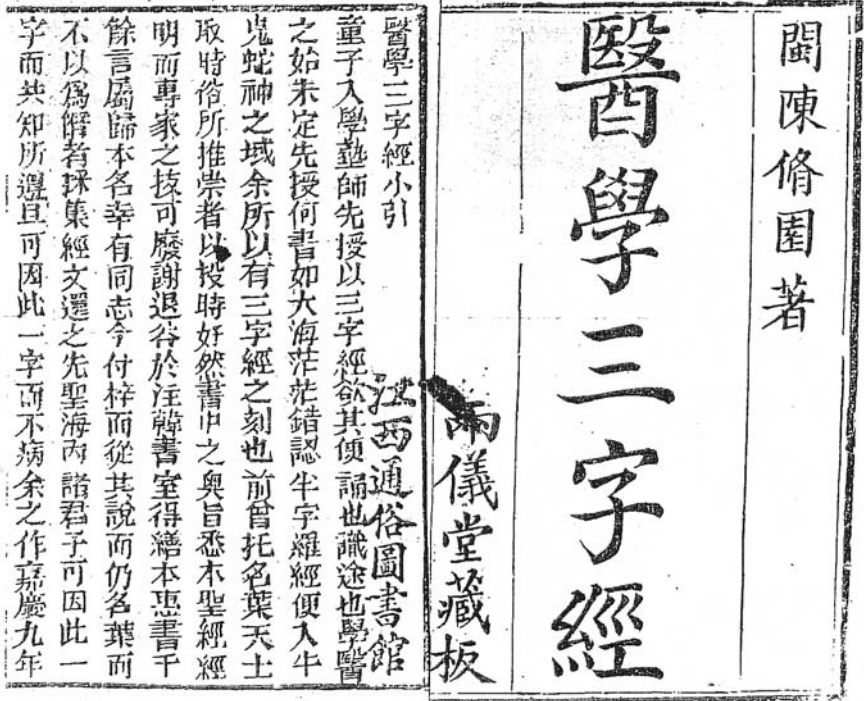 閩陳脩園著
醫學三字經
兩儀堂藏板
江西通俗圖書館
醫學三字經小引
童子入學塾師先授以三字經欲其便誦也識途也學醫
之始未定先授何書如大海茫茫錯認半字羅經便入牛
鬼蛇神之域余所以有三字經之刻也前曾托名葉天士
取時俗所推崇者以投時好然書中之奧旨悉本聖經經
明而專家之技可廢謝退谷於注韓書室得繕本惠書千
餘言屬歸本名幸有同志今付梓而從其說而仍名葉而
不以為僭者採集經文還之先聖海內諸君子可因此一
字而共知所遵且可因此一字而不病余之作嘉慶九年